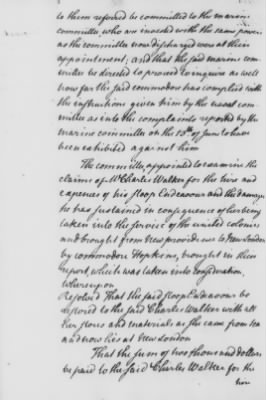 to them referred be committed to the marine
committee, who are invested with the same powers
as the committee now discharged were at their
appointment; and that the said marine com-
mittee be directed to proceed to enquire as well
how far the said commodore has complied with
the instructions given him by the naval com-
mittee as into the complaints reported by the
marine committee on the 13th of June to have
been exhibited against him
The committee appointed to examine the
claims of Mr Charles Walker for the hire and
expences of his sloop Endeavour and the damage
he has sustained in consequence of her being
taken into the service of the united colonies
and brought from New providence to New London
by commodore Hopkins, brought in their
report, which was taken into consideration,
Whereupon
Resolved That the said sloop Endeavour be
restored to the said Charles Walker with all
her stores and materials as she came from sea
and now lies at New London
That the sum of two thousand dollars
be paid to the said Charles Walker for the
hire